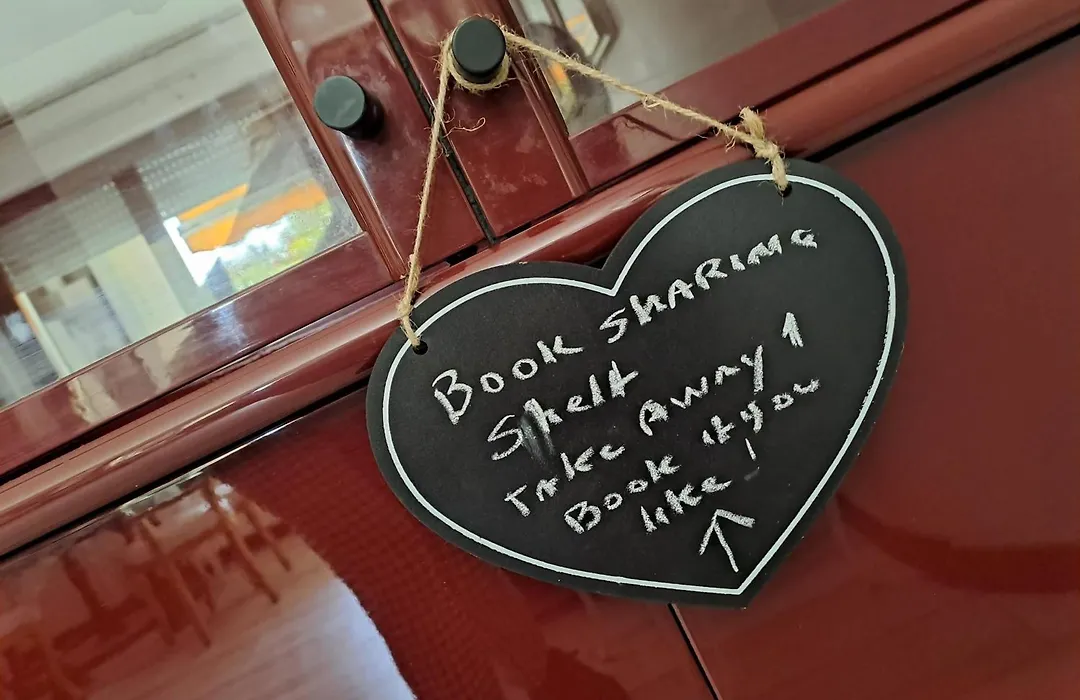 Book SHARING
Shelf
Take Away 1
Book if you
like !